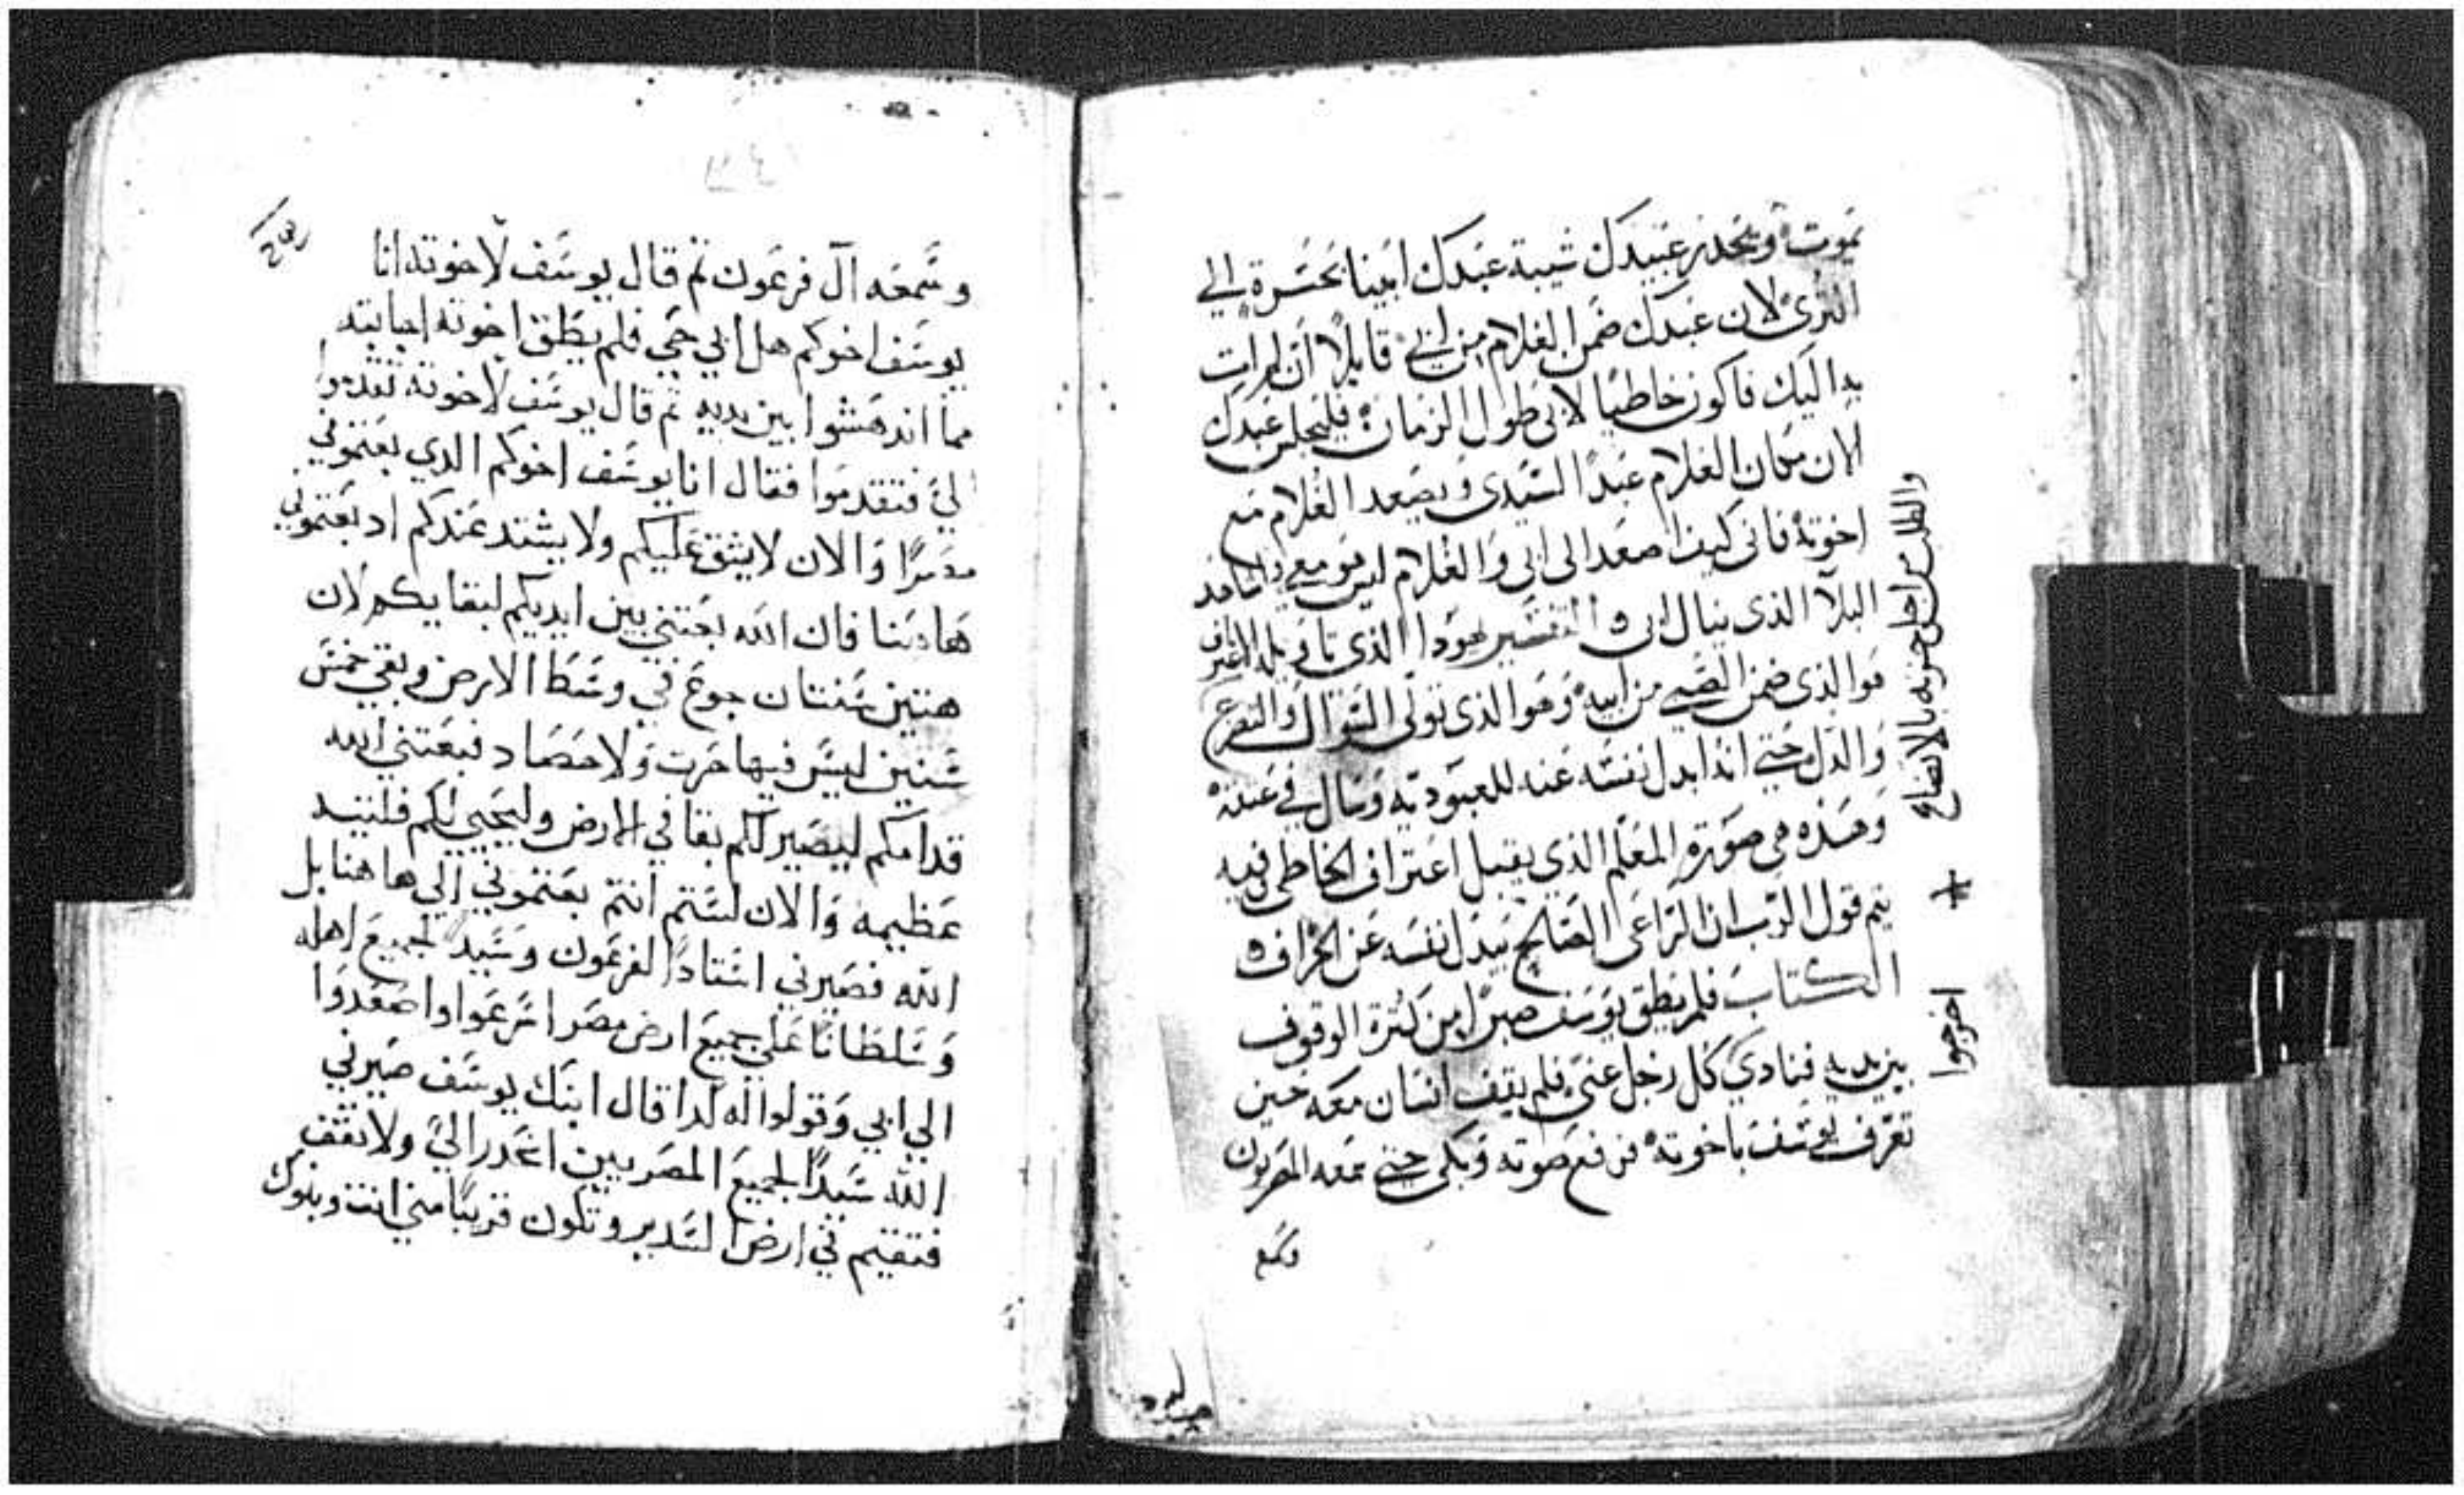 يموت وتحدر عبيدك شيبة عبدك ابينا بحسرة الي
الثرى لان عبدك ضمن الغلام من ابي قايلا ان لم ات
به اليك فاكون خاطيا لابى طول الزمان فليجلس عبدك
الان مكان الغلام عبدا لسيدى ويصعد الغلام مع
اخوته فانى كيف اصعد الى ابى والغلام ليس هو معي
البلا الذى ينال ابى التفسير يهودا الذى
هو الذى ضمن الصبي من ابيه وهو الذى تولى السوال والتضرع
والدل حتي انه ابدل نفسه عنه للعبودية وسال في عتقه
وهذه هى صورة المعلم الذي يقبل اعتراف الخاطى وفيه
يتم قول الرب ان الراعى الصالح يبدل نفسه عن الخراف
الكتاب فلم يطق يوسف صبرا من كثرة الوقوف
بين يديه فنادي كل رجل عنى فلم يقف انسان معه حين
تعرف يوسف باخوته فرفع صوته وبكى حتي سمعه المصريون
وسمع
والطلب من اجل حزنه بالاتضاع
اخرجوا
وسمعه ال فرعون ثم قال يوسف لاخوته انا
يوسف اخوكم هل ابي حي فلم يطق اخوته اجابته
مما اندهشوا بين يديه ثم قال يوسف لاخوته تقدموا
الي فتقدموا فقال انا يوسف اخوكم الدي بعتموني
مصرا والان لا يشق عليكم ولا يشتد عندكم اد بعتموني
هاهنا فان الله بعتني بين ايديكم لبقايكم لان
هتين سنتان جوع في وسط الارض وبقي خمس
سنين ليس فيها حرت ولا حصاد فبعتني الله
قدامكم ليصير لكم بقا في الارض وليحيي لكم فلتيه
عظيمه والان لستم انتم بعتموني الي هاهنا بل
الله فصيرني استادا لفرعون وسيد لجميع اهله
وسلطانا علي جميع ارض مصر اسرعوا واصعدوا
الي ابي وقولوا له كدا قال ابنك يوسف صيرني
الله سيدا لجميع المصريين انحدر الي ولا تقف
فتقيم في ارض السدير وتكون قريبا مني انت وبنوك